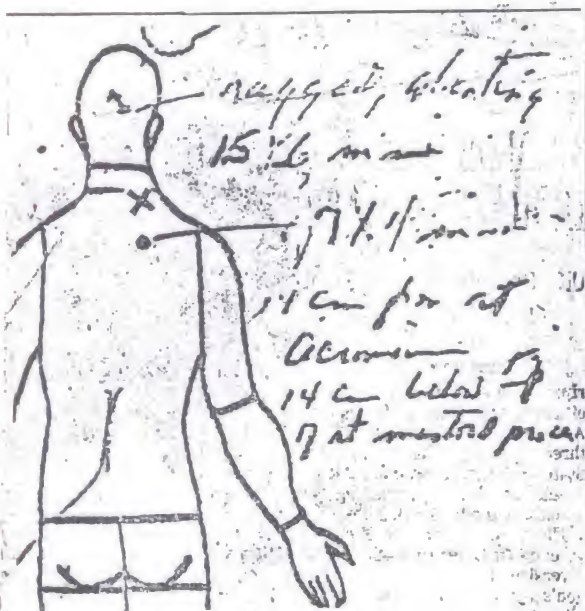 ragged, slanting
15 X 6 mm
7 X 4 mm
14 cm from rt
acromion
14 cm below tip
of rt mastoid process